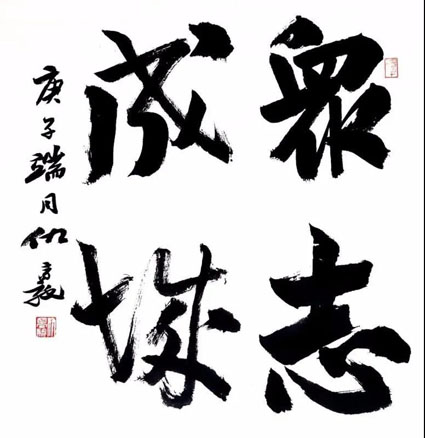 眾志
成城
庚子端月仰敦